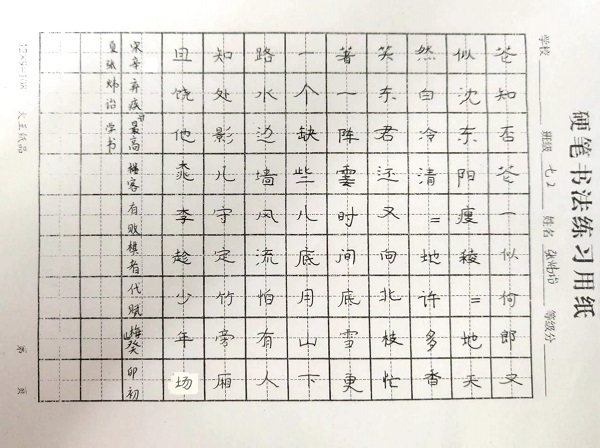 硬笔书法练习用纸
学校 班级 七2 姓名 张炜 等级分
花知否花一似何郎又
似沈东阳瘦棱=地天
然白冷清=地许多香
笑东君还又向北枝忙
著一阵霎时间底雪更
一个缺些儿底用山下
路水边墙风流怕有人
知处影儿守定竹旁厢
且饶他桃李趁少年场
宋辛弃疾最高楼客有败棋者代赋梅癸卯初
夏张炜学书
12×9=108 纸品 第 页